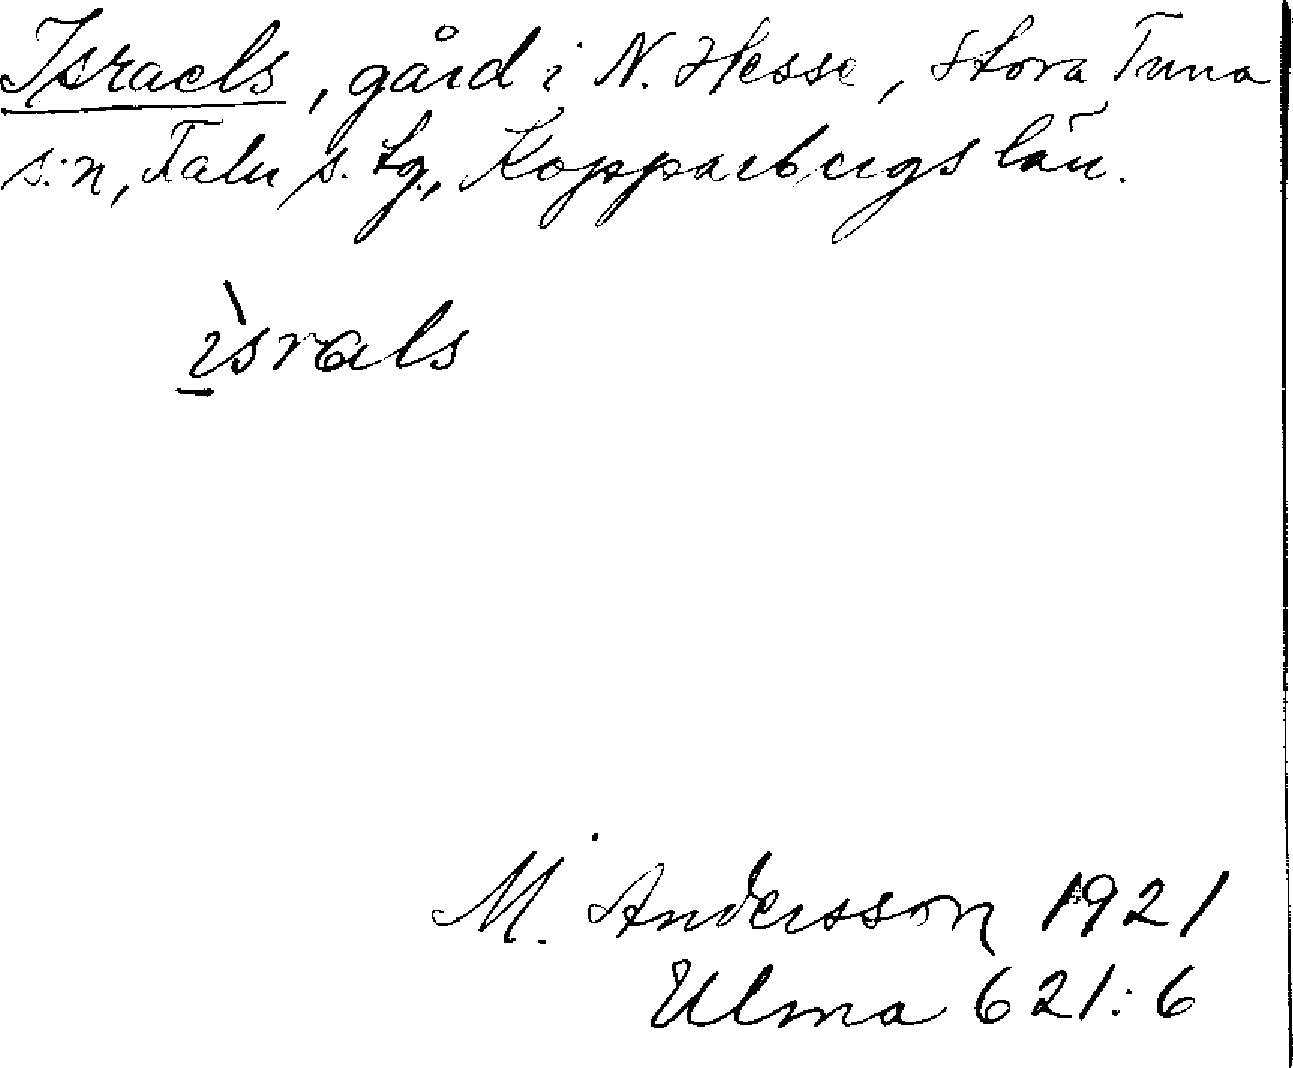 Israels, gård i N. Hesse, Stora Tuna
s:n, Falu s. tg., Kopparbergs län.
ìsrals
M. Andersson 1921
Ulma 621:6